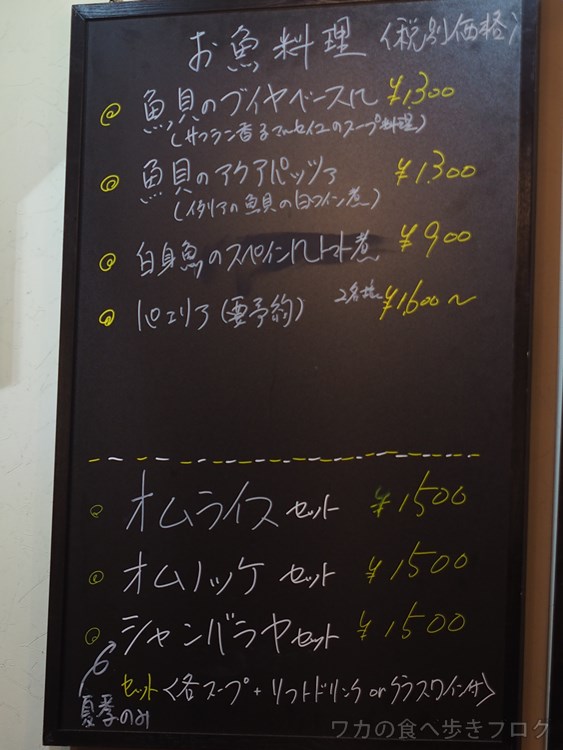 お魚料理 (税別価格)
◎ 魚貝のブイヤベース ¥1,300
(サフラン香るマルセイユのスープ料理)
◎ 魚貝のアクアパッツァ ¥1,300
(イタリアの魚貝の白ワイン煮)
◎ 白身魚のスペイン風トマト煮 ¥900
◎ パエリア(要予約) 2名様〜 ¥1,600〜
◎ オムライス セット ¥1500
◎ オムノッケ セット ¥1500
◎ シャンバラヤ セット ¥1500
夏季のみ
セット〈各スープ + ソフトドリンク or グラスワイン付〉
ワカの食べ歩きブログ